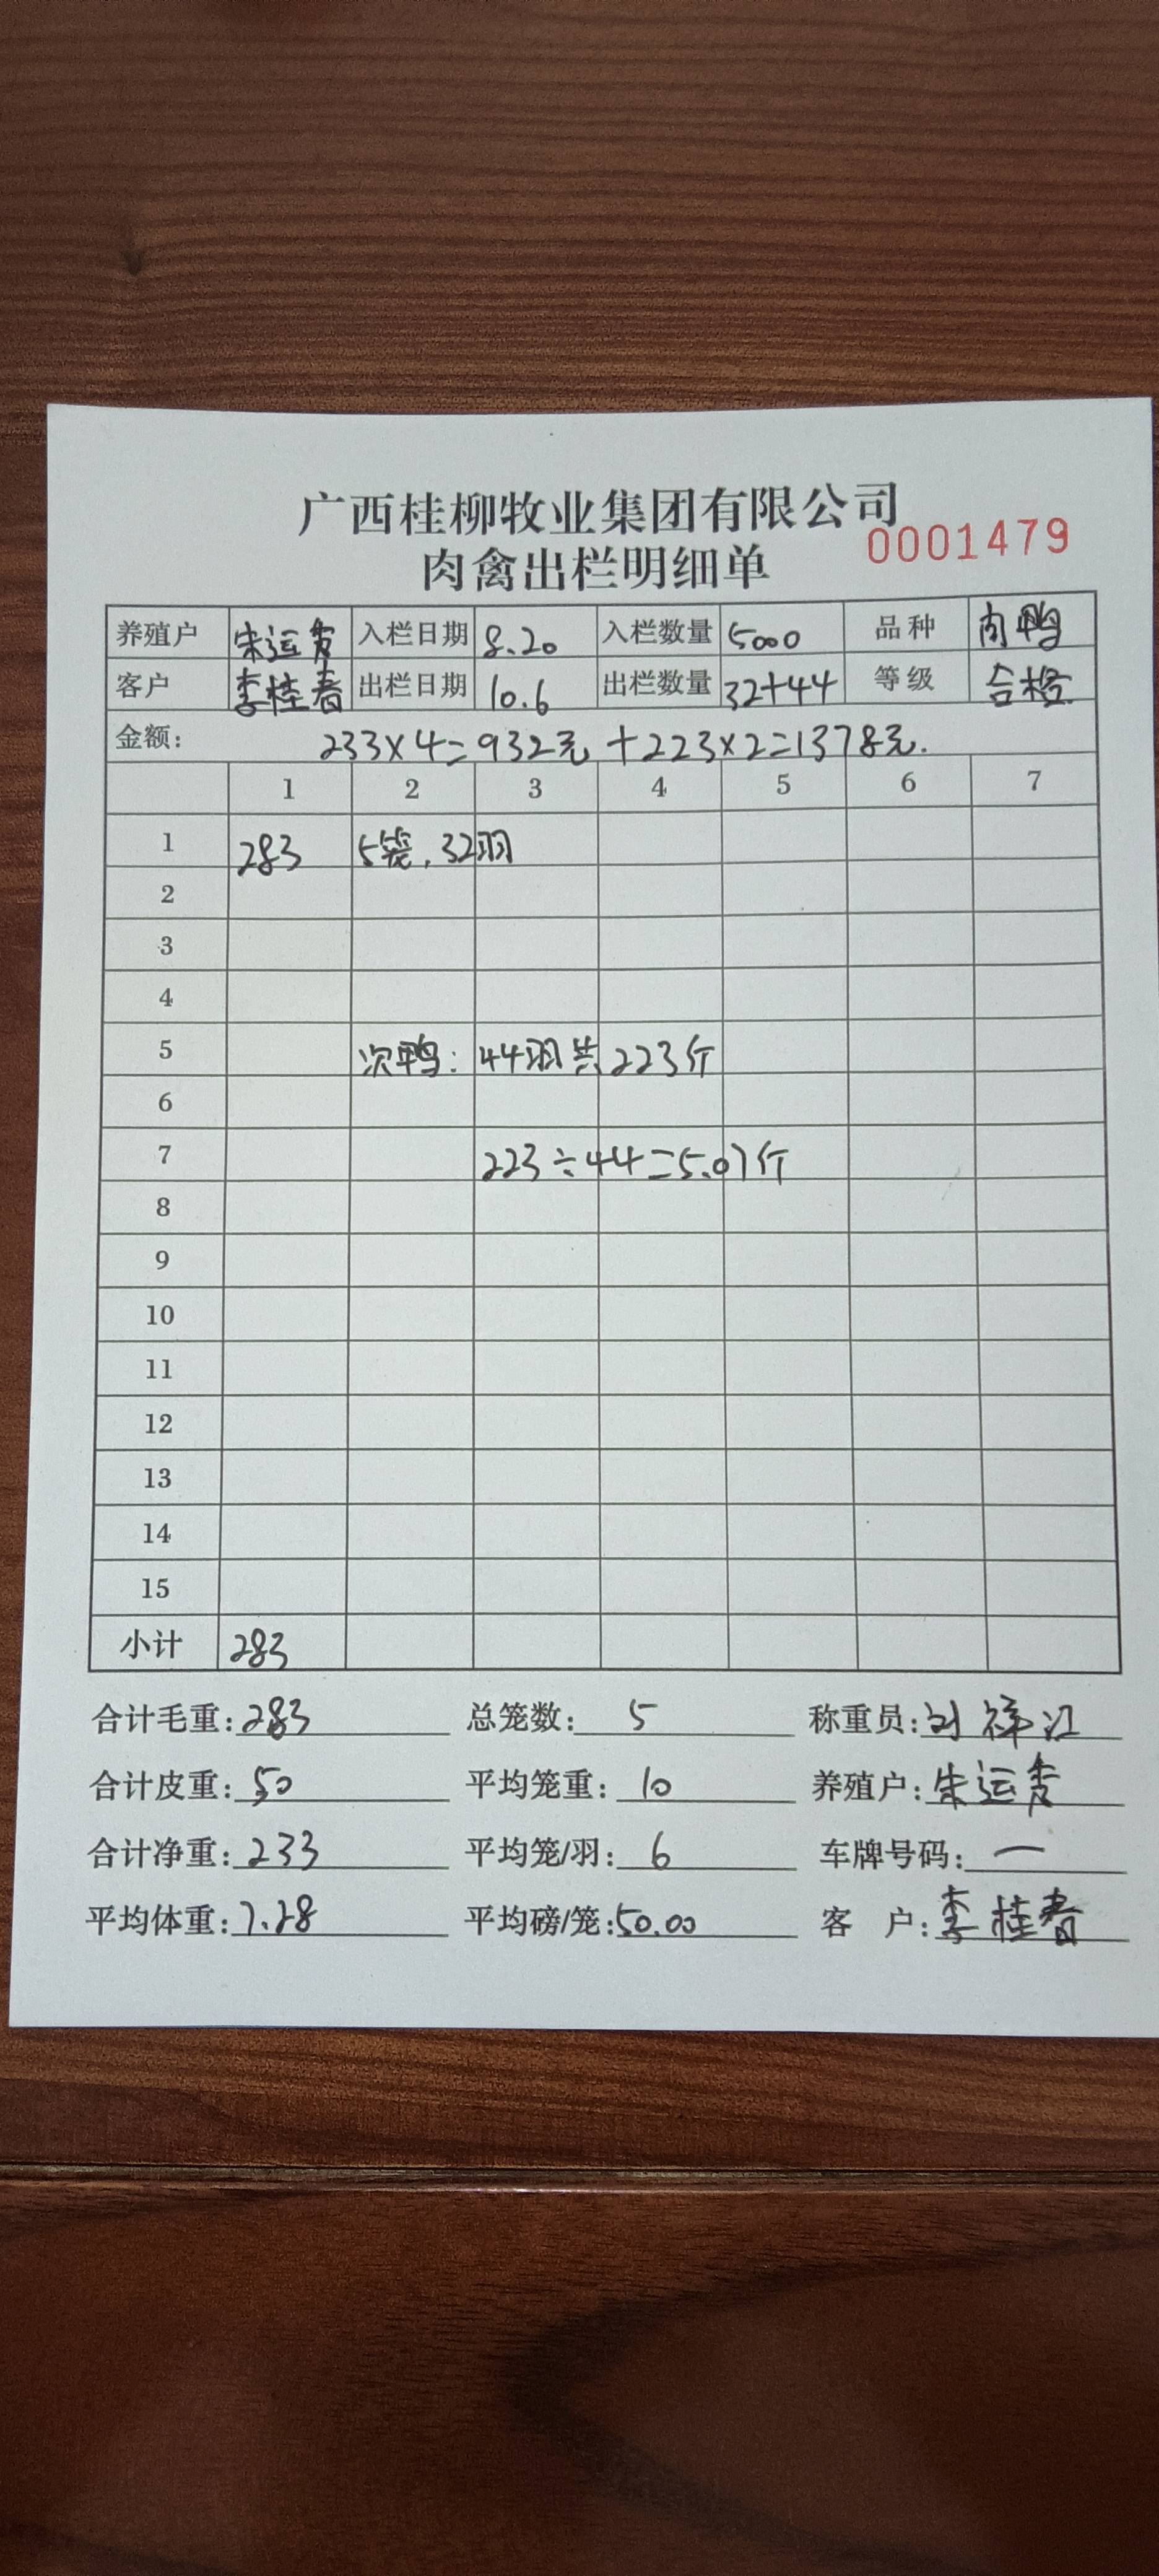 广西桂柳牧业集团有限公司
肉禽出栏明细单 0001479
养殖户 朱运发 入栏日期 8.20 入栏数量 5000 品种 肉鸭
客户 李桂春 出栏日期 10.6 出栏数量 32+44 等级 合格
金额: 233×4=932元 +223×2=1378元.
1 2 3 4 5 6 7
1 283 5笼, 32羽
2
3
4
5 次鸭: 44羽共223斤
6
7 223÷44=5.07斤
8
9
10
11
12
13
14
15
小计 283
合计毛重: 283 总笼数: 5 称重员: 刘祥江
合计皮重: 50 平均笼重: 10 养殖户: 朱运发
合计净重: 233 平均笼/羽: 6 车牌号码: 一
平均体重: 7.28 平均磅/笼: 50.00 客 户: 李桂春